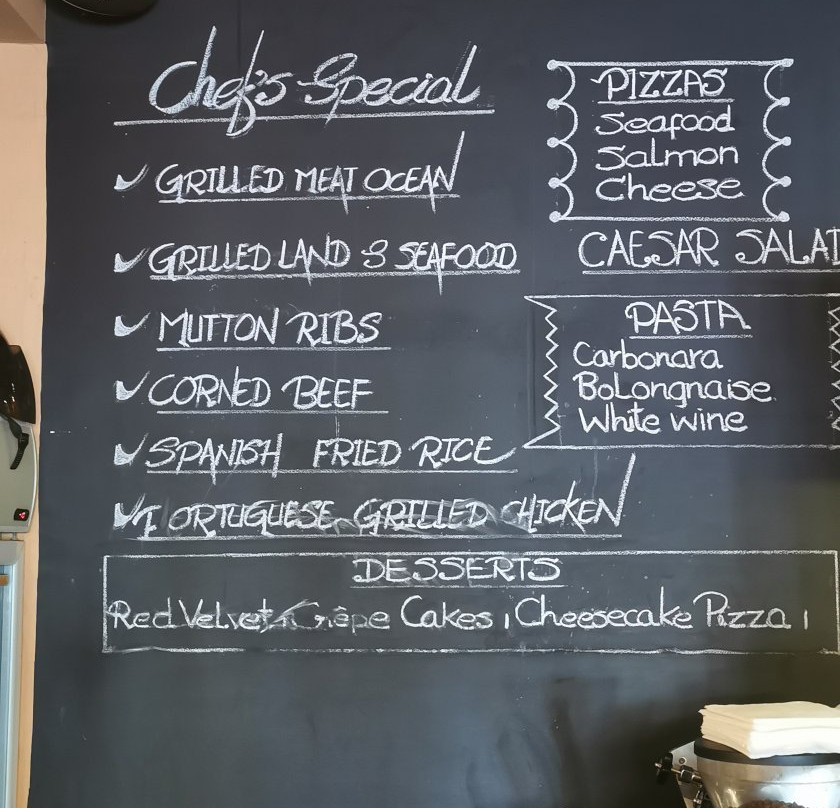 Chef's Special
GRILLED MEAT OCEAN
GRILLED LAND & SEAFOOD
MUTTON RIBS
CORNED BEEF
SPANISH FRIED RICE
PORTUGUESE GRILLED CHICKEN
PIZZAS
Seafood
Salmon
Cheese
CAESAR SALAD
PASTA
Carbonara
BoLongnaise
White wine
DESSERTS
Red Velvet, Crêpe Cakes, Cheesecake Pizza,